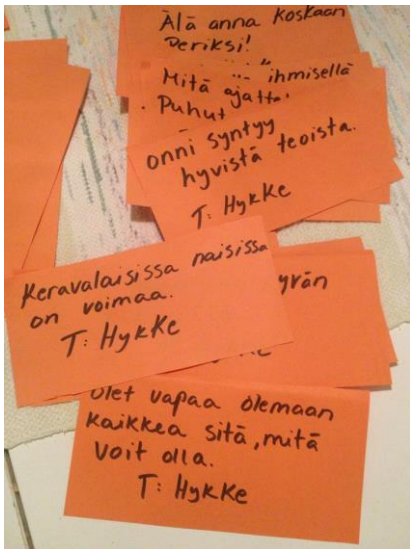 Älä anna koskaan
periksi!
Mitä ihmisellä
Puhut
onni syntyy
hyvistä teoista.
T: Hykke
Keravalaisissa naisissa
on voimaa.
T: Hykke
Olet vapaa olemaan
kaikkea sitä, mitä
voit olla.
T: Hykke